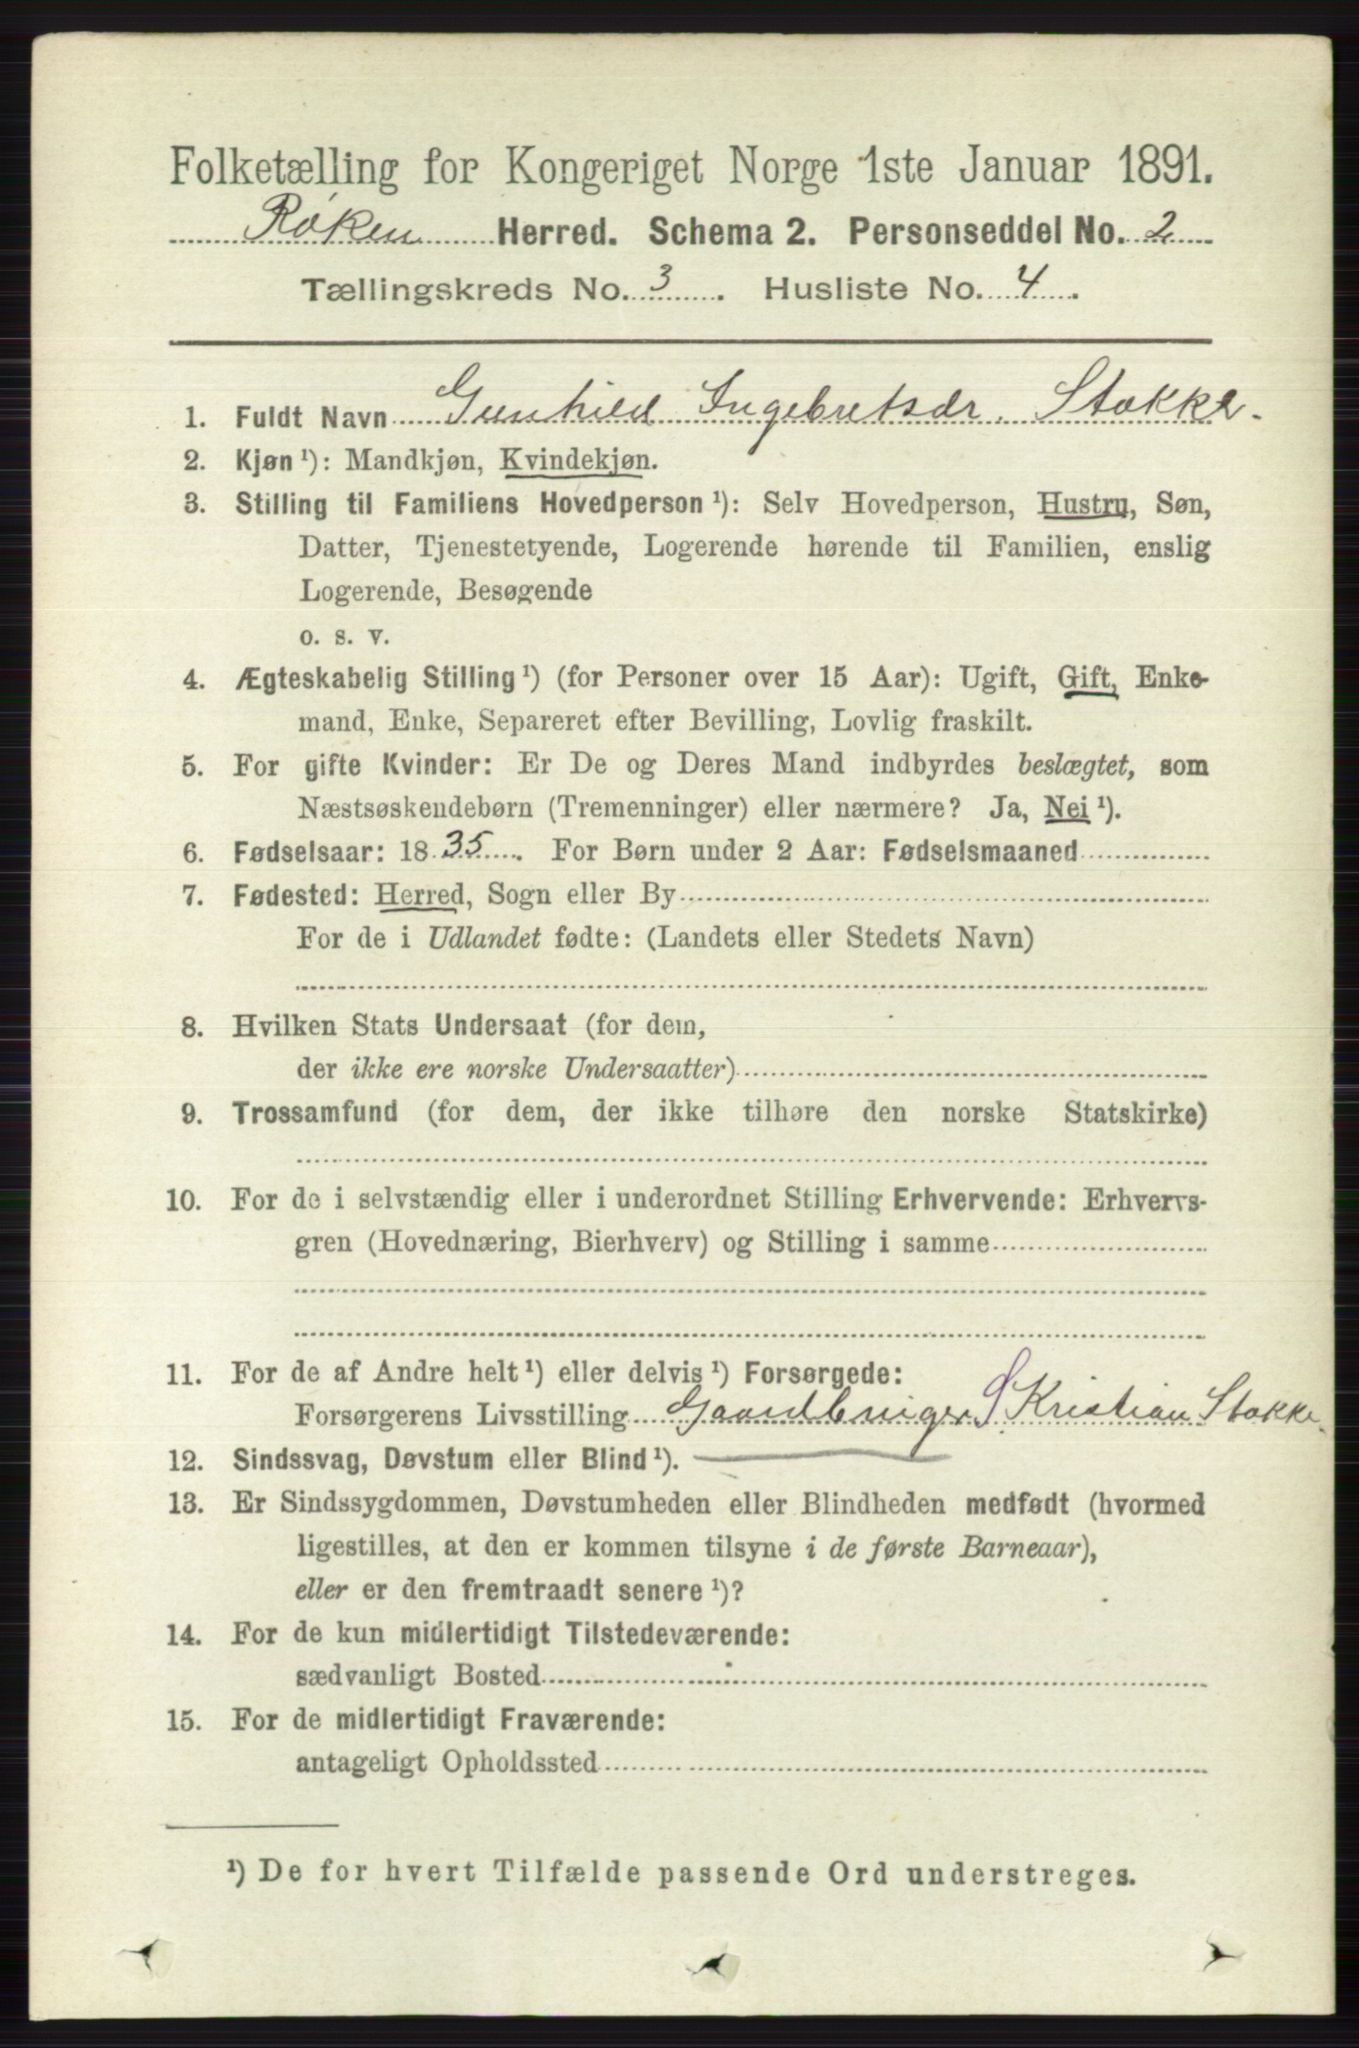 Folketælling for Kongeriget Norge 1ste Januar 1891.
Røken Herred. Schema 2. Personseddel No. 2
Tællingskreds No. 3. Husliste No. 4.
1. Fuldt Navn Gunhild Ingebretsdr. Stokke.
2. Kjøn ¹): Mandkjøn, Kvindekjøn.
3. Stilling til Familiens Hovedperson ¹): Selv Hovedperson, Hustru, Søn,
Datter, Tjenestetyende, Logerende hørende til Familien, enslig
Logerende, Besøgende
o. s. v.
4. Ægteskabelig Stilling ¹) (for Personer over 15 Aar): Ugift, Gift, Enke-
mand, Enke, Separeret efter Bevilling, Lovlig fraskilt.
5. For gifte Kvinder: Er De og Deres Mand indbyrdes beslægtet, som
Næstsøskendebørn (Tremenninger) eller nærmere? Ja, Nei ¹).
6. Fødselsaar: 1835. For Børn under 2 Aar: Fødselsmaaned
7. Fødested: Herred, Sogn eller By
For de i Udlandet fødte: (Landets eller Stedets Navn)
8. Hvilken Stats Undersaat (for dem,
der ikke ere norske Undersaatter)
9. Trossamfund (for dem, der ikke tilhøre den norske Statskirke)
10. For de i selvstændig eller i underordnet Stilling Erhvervende: Erhvervs-
gren (Hovednæring, Bierhverv) og Stilling i samme
11. For de af Andre helt ¹) eller delvis ¹) Forsørgede:
Forsørgerens Livsstilling Gaardbruger S. Kristian Stokke.
12. Sindssvag, Døvstum eller Blind ¹).
13. Er Sindssygdommen, Døvstumheden eller Blindheden medfødt (hvormed
ligestilles, at den er kommen tilsyne i de første Barneaar),
eller er den fremtraadt senere ¹)?
14. For de kun midlertidigt Tilstedeværende:
sædvanligt Bosted
15. For de midlertidigt Fraværende:
antageligt Opholdssted
¹) De for hvert Tilfælde passende Ord understreges.